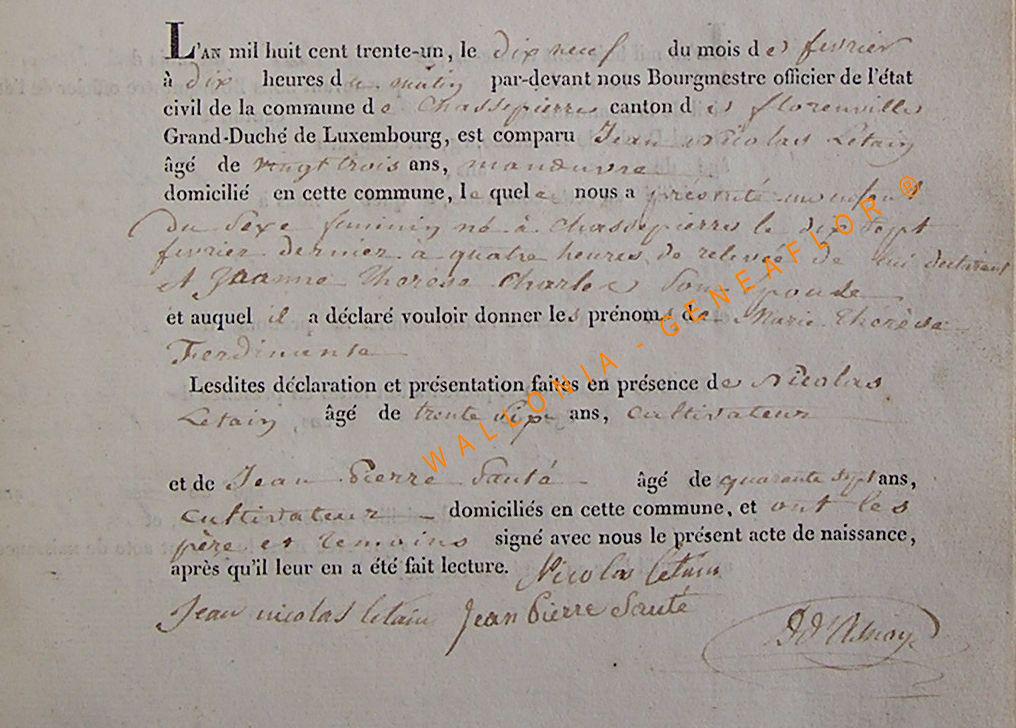 L'AN mil huit cent trente-un, le dix neuf du mois de fevrier
à dix heures du matin par-devant nous Bourgmestre officier de l'état
civil de la commune de Chassepierre canton de florenville
Grand-Duché de Luxembourg, est comparu Jean Nicolas Letain
âgé de vingt trois ans, manœuvre
domicilié en cette commune, le quel nous a présenté un enfant
du sexe feminin né à Chassepierre le dix sept
fevrier dernier à quatre heures de relevée de lui declarant
et Jeanne Therese Charles son epouse
et auquel il a déclaré vouloir donner les prénoms de Marie Therèse
Ferdinante
Lesdites déclaration et présentation faites en présence de Nicolas
Letain, âgé de trente ans, cultivateur
et de Jean Pierre Santé âgé de quarante sept ans,
cultivateur domiciliés en cette commune, et ont les
père et temoins signé avec nous le présent acte de naissance,
après qu'il leur en a été fait lecture. Nicolas letain
Jean nicolas letain Jean Pierre Santé
WALLONIA - GENEAFLOR ®